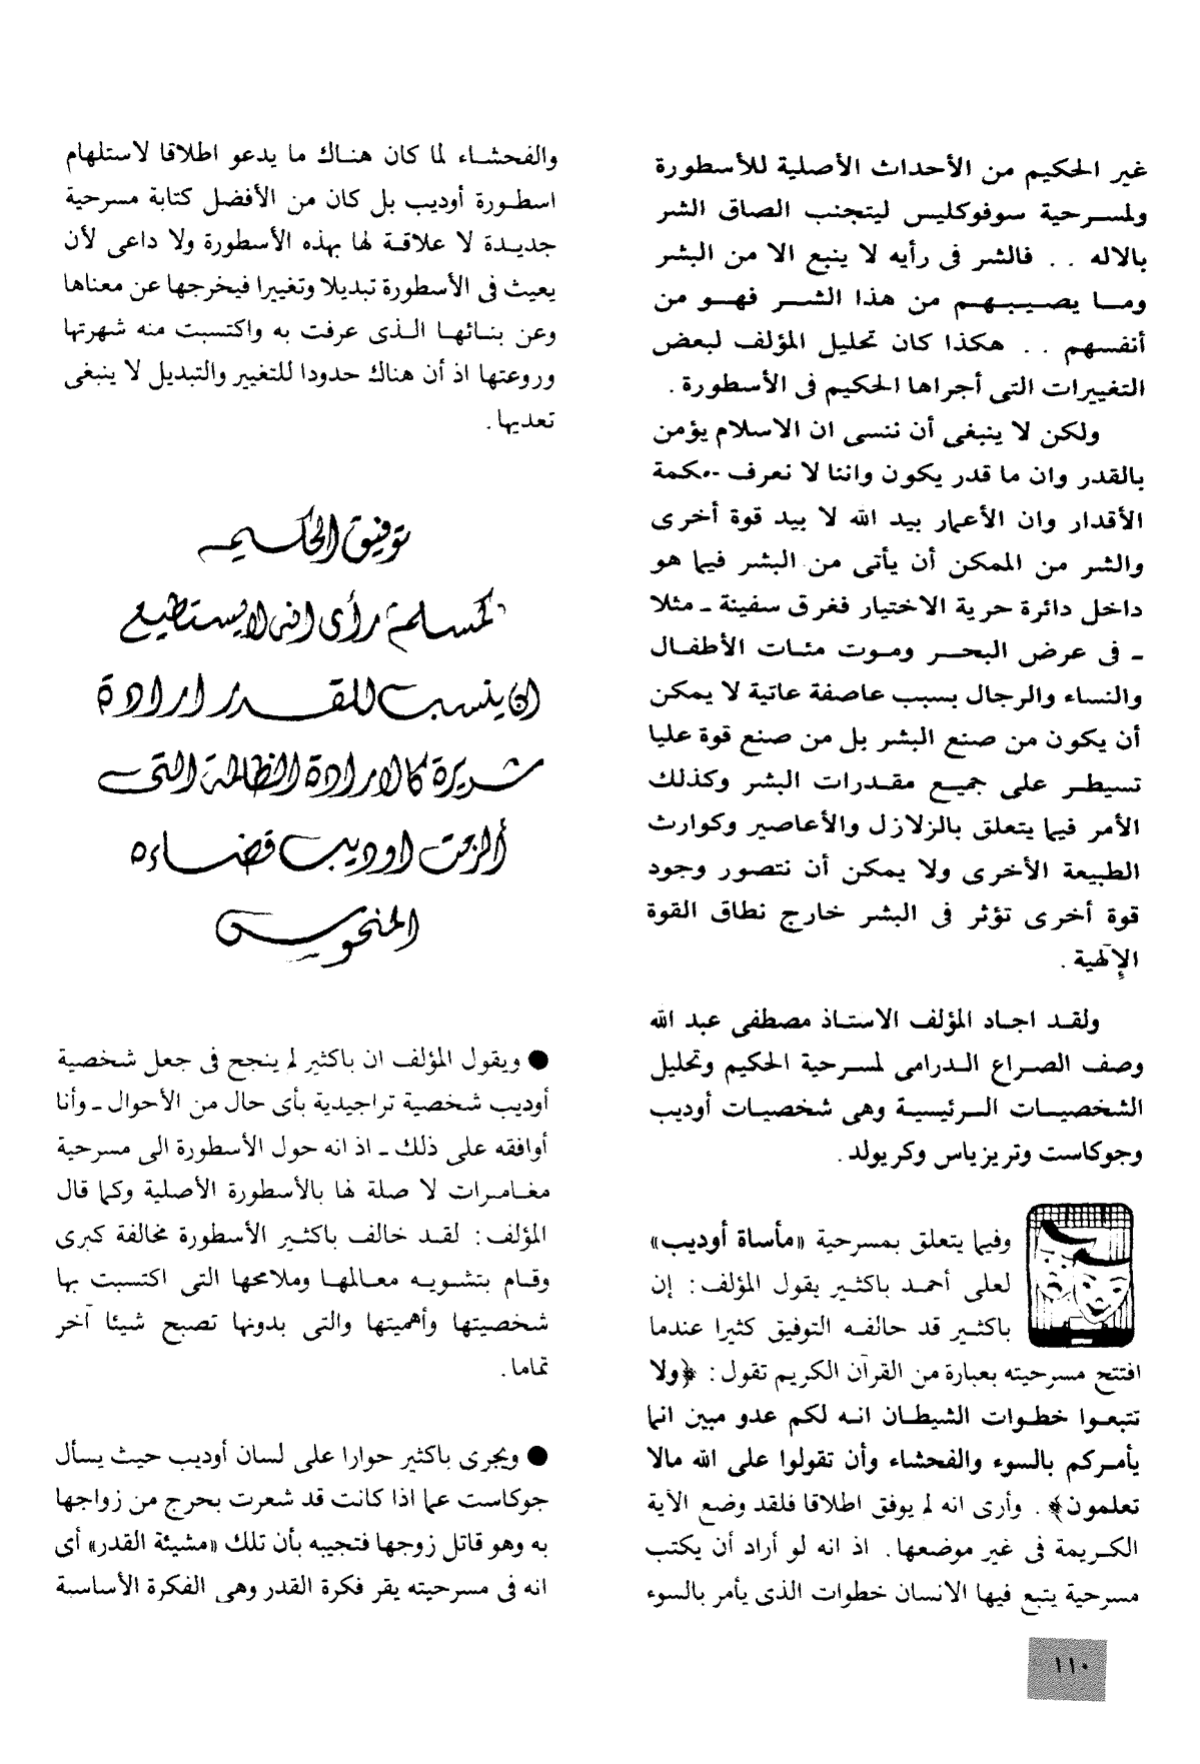 غير الحكيم من الأحداث الأصلية للأسطورة
ولمسرحية سوفوكليس ليتجنب الصاق الشر
بالاله . . فالشر فى رأيه لا ينبع الا من البشر
وما يصيبهم من هذا الشر فهو من
أنفسهم . . هكذا كان تحليل المؤلف لبعض
التغييرات التى أجراها الحكيم فى الأسطورة .
ولكن لا ينبغى أن ننسى ان الاسلام يؤمن
بالقدر وان ما قدر يكون واننا لا نعرف حكمة
الأقدار وان الأعمار بيد الله لا بيد قوة أخرى
والشر من الممكن أن يأتى من البشر فيما هو
داخل دائرة حرية الاختيار فغرق سفينة ـ مثلا
ـ فى عرض البحر وموت مئات الأطفال
والنساء والرجال بسبب عاصفة عاتية لا يمكن
أن يكون من صنع البشر بل من صنع قوة عليا
تسيطر على جميع مقدرات البشر وكذلك
الأمر فيما يتعلق بالزلازل والأعاصير وكوارث
الطبيعة الأخرى ولا يمكن أن نتصور وجود
قوة أخرى تؤثر فى البشر خارج نطاق القوة
الإلهية .
ولقد اجاد المؤلف الاستاذ مصطفى عبد الله
وصف الصراع الدرامى لمسرحية الحكيم وتحليل
الشخصيات الرئيسية وهى شخصيات أوديب
وجوكاست وتريزياس وكريولد .
وفيما يتعلق بمسرحية «مأساة أوديب»
لعلى أحمد باكثير يقول المؤلف : إن
باكثير قد حالفه التوفيق كثيرا عندما
افتتح مسرحيته بعبارة من القرآن الكريم تقول : ﴿ولا
تتبعوا خطوات الشيطان انه لكم عدو مبين انما
يأمركم بالسوء والفحشاء وأن تقولوا على الله مالا
تعلمون﴾ . وأرى انه لم يوفق اطلاقا فلقد وضع الآية
الكريمة فى غير موضعها. اذ انه لو أراد أن يكتب
مسرحية يتبع فيها الانسان خطوات الذى يأمر بالسوء
والفحشاء لما كان هناك ما يدعو اطلاقا لاستلهام
اسطورة أوديب بل كان من الأفضل كتابة مسرحية
جديدة لا علاقة لها بهذه الأسطورة ولا داعى لأن
يعيث فى الأسطورة تبديلا وتغييرا فيخرجها عن معناها
وعن بنائها الذى عرفت به واكتسبت منه شهرتها
وروعتها اذ أن هناك حدودا للتغيير والتبديل لا ينبغى
تعديها.
توفيق الحكيم
كمسلم رأى انه لا يستطيع
ان ينسب للقدر ارادة
شريرة كالارادة الظالمة التى
ألزمت اوديب قضاءه
المنحوس
● ويقول المؤلف ان باكثير لم ينجح فى جعل شخصية
أوديب شخصية تراجيدية بأى حال من الأحوال ـ وأنا
أوافقه على ذلك ـ اذ انه حول الأسطورة الى مسرحية
مغامرات لا صلة لها بالأسطورة الأصلية وكما قال
المؤلف : لقد خالف باكثير الأسطورة مخالفة كبرى
وقام بتشويه معالمها وملامحها التى اكتسبت بها
شخصيتها وأهميتها والتى بدونها تصبح شيئا آخر
تماما .
● ويجرى باكثير حوارا على لسان أوديب حيث يسأل
جوكاست عما اذا كانت قد شعرت بحرج من زواجها
به وهو قاتل زوجها فتجيبه بأن تلك «مشيئة القدر» أى
انه فى مسرحيته يقر فكرة القدر وهى الفكرة الأساسية
١١٠